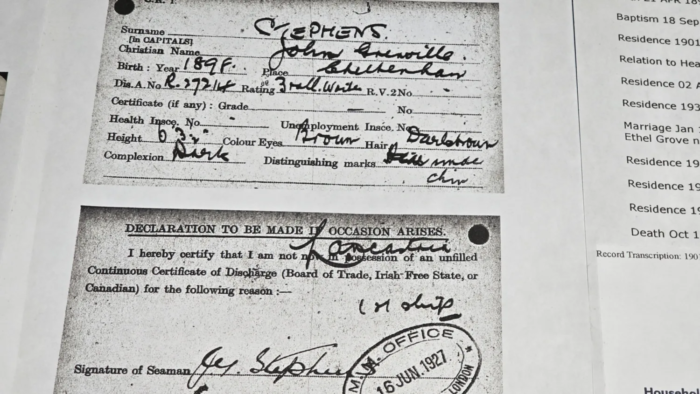 Surname STEPHENS.
[In CAPITALS]
Christian Name John Grenville.
Birth: Year 189 Place Cheltenham
Dis. A. No. R. 27214 Rating R.V. 2 No
Certificate (if any) : Grade — No
Health Insce. No. Unemployment Insce. No
Height 6' 3" Colour Eyes Brown Hair Darkbrown
Complexion Dark Distinguishing marks
chin
DECLARATION TO BE MADE IF OCCASION ARISES.
Lancastria
I hereby certify that I am not now in possession of an unfilled
Continuous Certificate of Discharge (Board of Trade, Irish Free State, or
Canadian) for the following reason :—
1st ship
Signature of Seaman Stephens
M.M. OFFICE
16 JUN. 1927
LONDON
Baptism 18 Sep
Residence 1901
Relation to Hea
Residence 02 A
Residence 193
Marriage Jan
Ethel Grove n
Residence 19
Residence 19
Residence 19
Death Oct 1
Record Transcription: 190
Househol